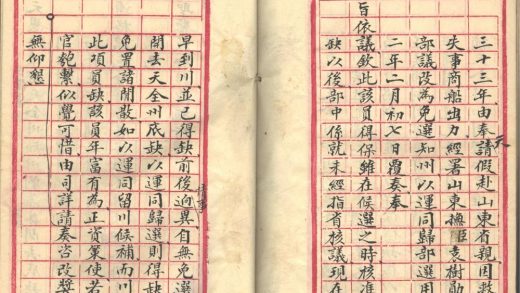 三十三年由奏請假赴山東省親因救
天
失事商船出力經署山東撫臣袁樹勛
部議改為免選知州以運同歸部選用
二年二月初七日覆奏奉
旨依議欽此該員得保雖在候選之時核准
缺以後部中係就未經指省核議現在
早到川並已得缺前後迥異自無免選
情事
開去天全州底缺以運同歸選則得缺
免置諸閒散如以運同留川候補而川
此項員缺該員年富有為正資策使若
官匏繫似覺可惜由司詳請奏咨改獎
無仰懇